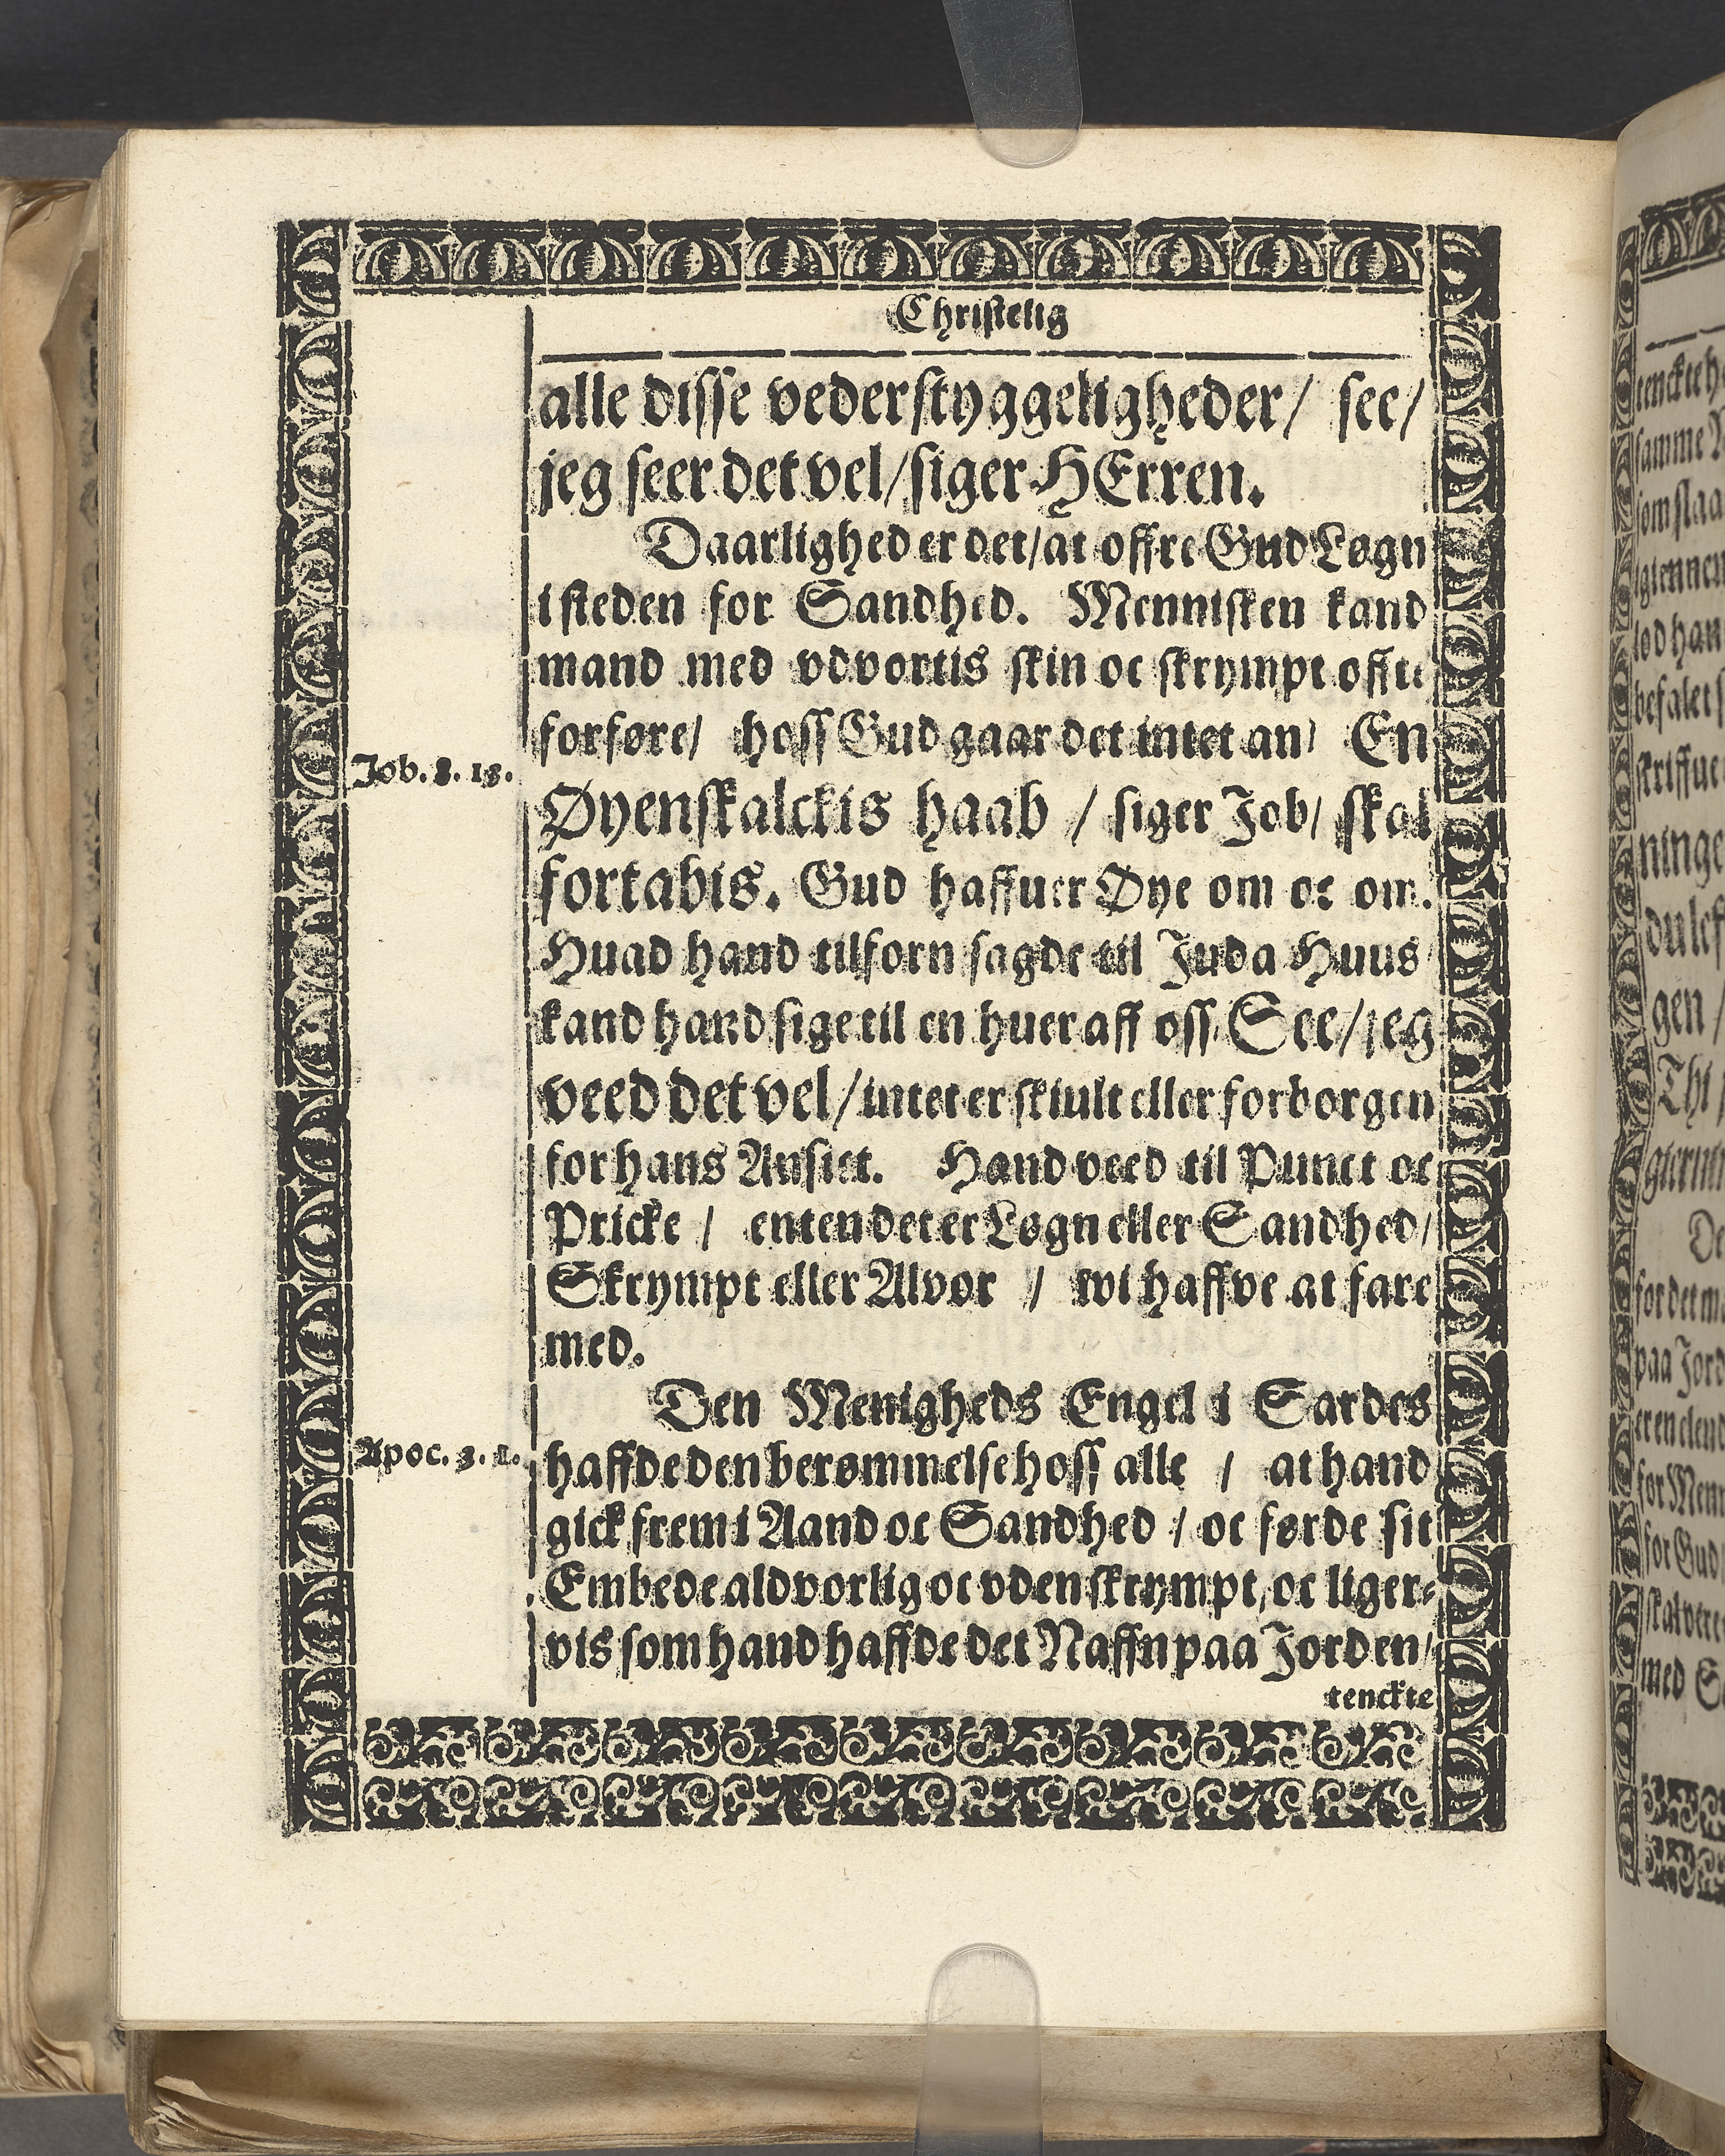 Christelig
alle disse vederstyggeligheder/ see/
jeg seer det vel/ siger HErren.
Daarlighed er det/ at offre Gud Løgn
i steden for Sandhed. Mennisken kand
mand med vdvortis skin oc skrympt offte
forføre/ hoss Gud gaar det intet an/ En
Job. 8. 13.
Øyenskalckis haab / siger Job/ skal
fortabis. Gud haffuer Øye om oc om.
Huad hand tilforn sagde til Juda Huus
kand hand sige til en huer aff oss/ See/ jeg
veed det vel/ intet er skiult eller forborgen
for hans Ansict. Hand veed til Punct oc
Pricke / enten det er Løgn eller Sandhed/
Skrympt eller Alvor / wi haffve at fare
med.
Den Menigheds Engel i Sardes
Apoc. 3. 1.
haffde den berømmelse hoss alle / at hand
gick frem i Aand oc Sandhed / oc førde sit
Embede aldvorlig oc vden skrympt/ oc liger-
vis som hand haffde det Naffn paa Jorden/
tenckte